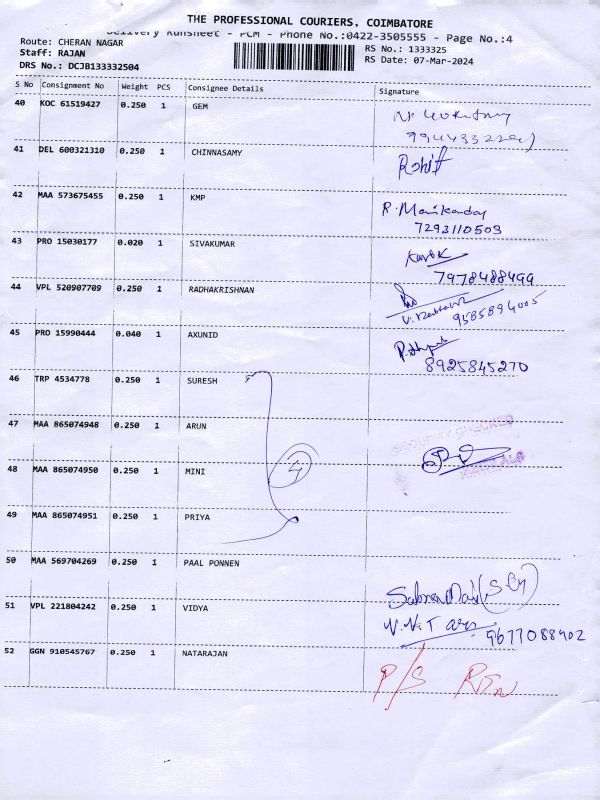 THE PROFESSIONAL COURIERS, COIMBATORE
Delivery Runsheet - PCM - Phone No.:0422-3505555 - Page No.:4
Route: CHERAN NAGAR
RS No.: 1333325
Staff: RAJAN
RS Date: 07-Mar-2024
DRS No.: DCJB133332504
S No Consignment No Weight PCS Consignee Details Signature
40 KOC 61519427 0.250 1 GEM
41 DEL 600321310 0.250 1 CHINNASAMY Rohit
42 MAA 573675455 0.250 1 KMP R. Manikanday
7293110503
43 PRO 15030177 0.020 1 SIVAKUMAR
7978488499
44 VPL 520907709 0.250 1 RADHAKRISHNAN
9585894005
45 PRO 15990444 0.040 1 AXUNID
8925845270
46 TRP 4534778 0.250 1 SURESH
47 MAA 865074948 0.250 1 ARUN
48 MAA 865074950 0.250 1 MINI 4
49 MAA 865074951 0.250 1 PRIYA
50 MAA 569704269 0.250 1 PAAL PONNEN
51 VPL 221804242 0.250 1 VIDYA
9677088402
52 GGN 910545767 0.250 1 NATARAJAN P/S RTN